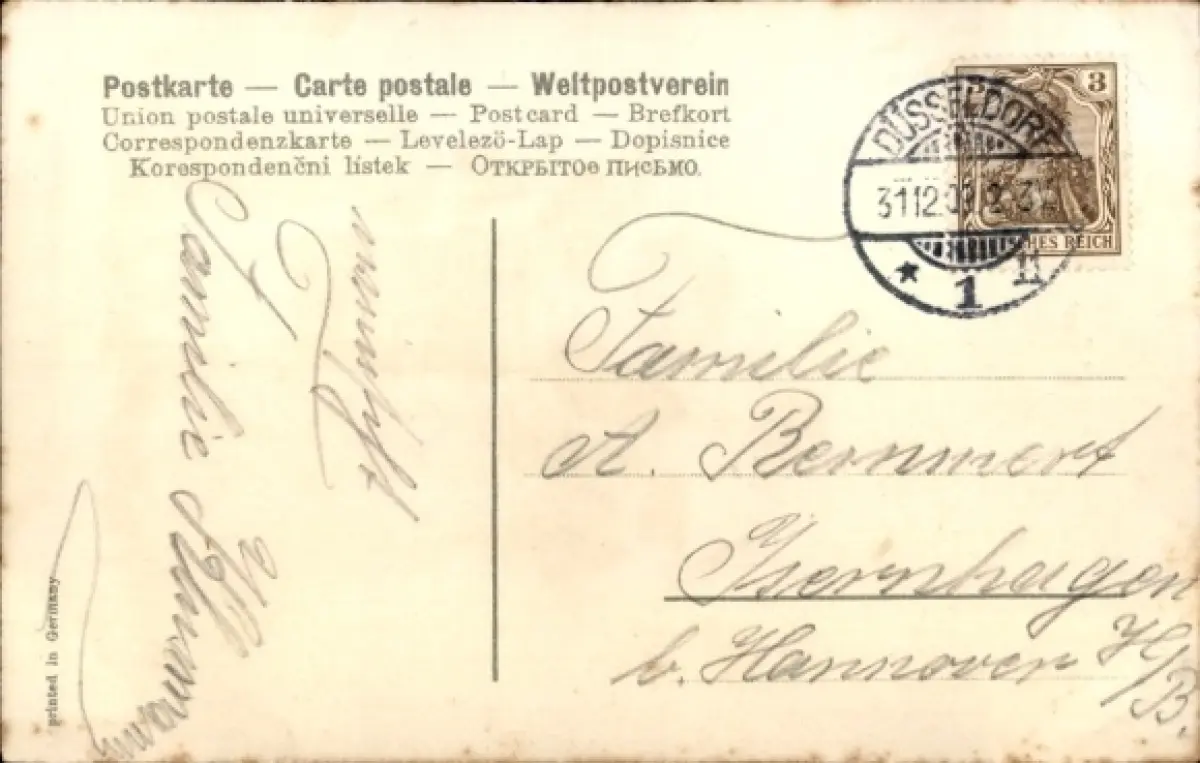 Postkarte — Carte postale — Weltpostverein
Union postale universelle — Postcard — Brefkort
Correspondenzkarte — Levelezö-Lap — Dopisnice
Korespondenční lístek — Открытое письмо.
3
DÜSSELDORF
31.12.09. 2-3
* 1 n
DEUTSCHES REICH
wünscht
Familie
Familie
A. Bernwert
Isernhagen
b. Hannover H/B.
printed in Germany